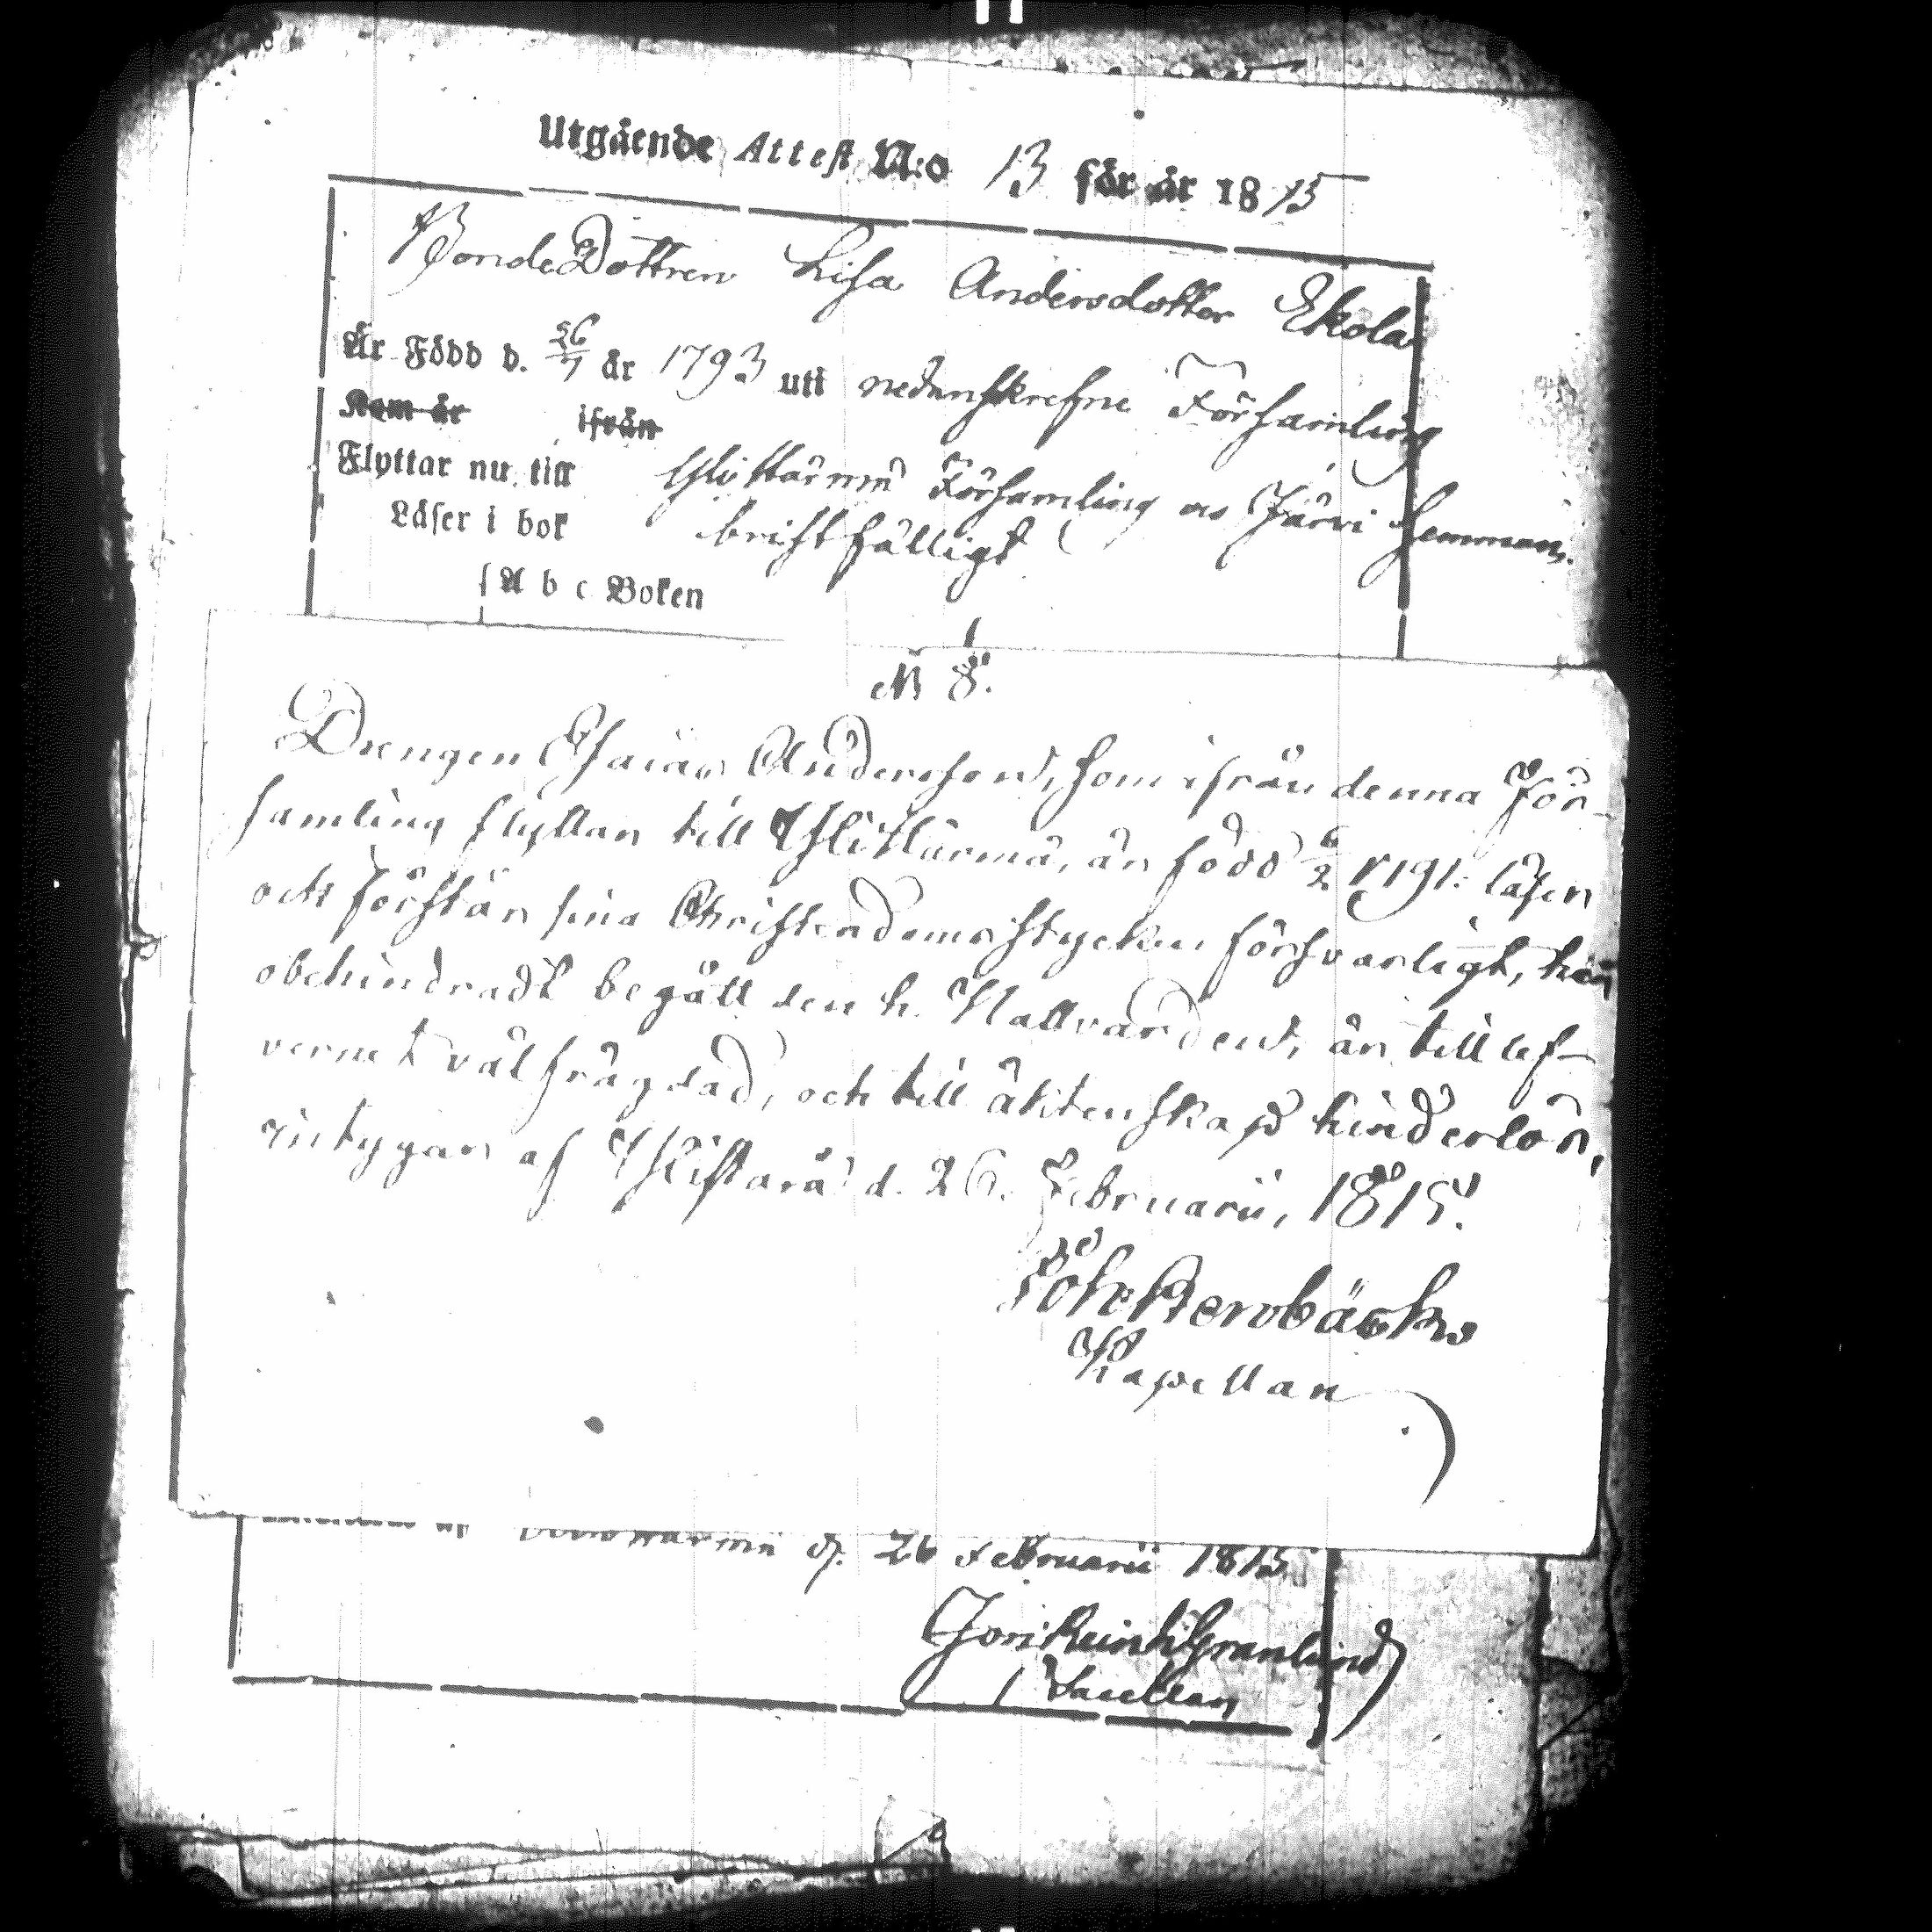 Utgående Attest N:o 13 för år 1815
BondeDottren Lisa Andersdotter Ekola
Är Född d. 26/7 år 1793 uti nedanskrefne Församling
Kom år ifrån
Flyttar nu till Ylistarmå Församling os Järvi hemman.
Läser i bok bristfälligt
A b c Boken
N 8.
Drengen Esaias Andersson, som ifrån denna För-
samling flyttar till Ylihärmä, är född 6/2 1791: läser
och förstår sina Christendoms stycken försvarligt, har
obehindradt begått den h. Nattvarden, är till lef-
vernet välfrägdad, och till äktenskap hinderlös,
intygar af Ylistaro d. 26. Februarii, 1815.
Joh: Kerobäck
Kapellan
d. 26 Februarii 1815
Joh Reinh Granlund
Sacellan